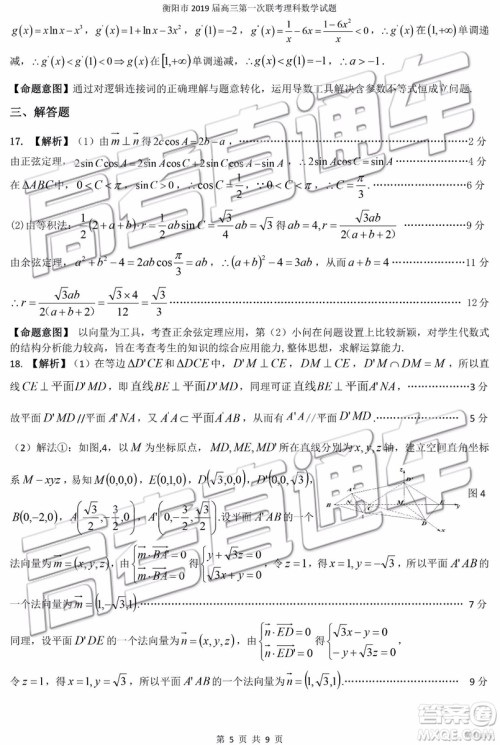 衡阳市 2019 届高三第一次联考理科数学试题
g(x)=x ln x−x³, g'(x)=1+ln x−3x², g''(x)=1/x−6x=(1−6x²)/x<0, ∴g'(x)在[1,+∞)单调递
减, ∴g'(x)<g'(1)<0 ∴g(x)在[1,+∞)单调递减, ∴g(x)<g(1)=−1, ∴a>−1.
【命题意图】通过对逻辑连接词的正确理解与题意转化,巩固解决含参数不等式恒成立问题.
三、解答题
17. 【解析】(1)由m⊥n得2c cosA=2b−a, 2 分
由正弦定理, 2sinCcosA=2sinAcosC+2sinCcosA−sinA, ∴2sinAcosC=sinA 4 分
在ΔABC中, 0<C<π, ∴sinC=
(2)由等积法: 1/2(2+a+b)·r=1/2 ab sinC=√3/4 ab 得 r=√3ab/2(2+a+b) 9 分
由余弦定理, a²+b²−4=2ab cos π/3 ∴(a+b)²−4=3ab, 从而a+b=4 11 分
∴r=√3ab/2(a+b+2)=√3×4/12=√3/3 12 分
【命题意图】 以向量为工具,考查正余弦定理应用,第(2)小问在问题设置上比较新颖,对学生代数式
的结构分析能力较高,旨在考查考生的知识的综合应用能力,整体思想,求解运算能力.
18. 【解析】(1)在等边ΔD'CE和ΔDCE中, D'M⊥CE, DM⊥CE, D'M∩DM=M, 所以直
线CE⊥平面D'MD, 即直线BE⊥平面D'MD, 同理可证直线BE⊥平面A'NA, 3 分
故平面D'MD//平面A'NA 5 分
(2)解法①: 如图,4, 以M为坐标原点, MD,ME,MD'所在直线分别为x,y,z轴,建立空间直角坐标
系M−xyz, 易知M(0,0,0) E(0,1,0), D(√3,0,0), D'(0,0,√3)
图 4
B(0,−2,0), A(√3/2,−3/2,0), A'(√3/2,−3/2,√3/2).设平面A'AB的一个
法向量为m=(x,y,z), 由{m·BA=0 m·BA'=0 得{y+√3z=0 √3x+y=0, 令z=1,得x=1,y=−√3,
的一个法向量为m=(1,−√3,1), 7 分
同理,设平面D'DE的一个法向量为n=(x,y,z), 由{n·ED=0 n·ED'=0 得{√3x−y=0 −y+√3z=0
令z=1, 得x=1,y=√3, 所以平面D'DE的一个法向量为n=(1,√3,1), 9 分
第 5 页 共 9 页